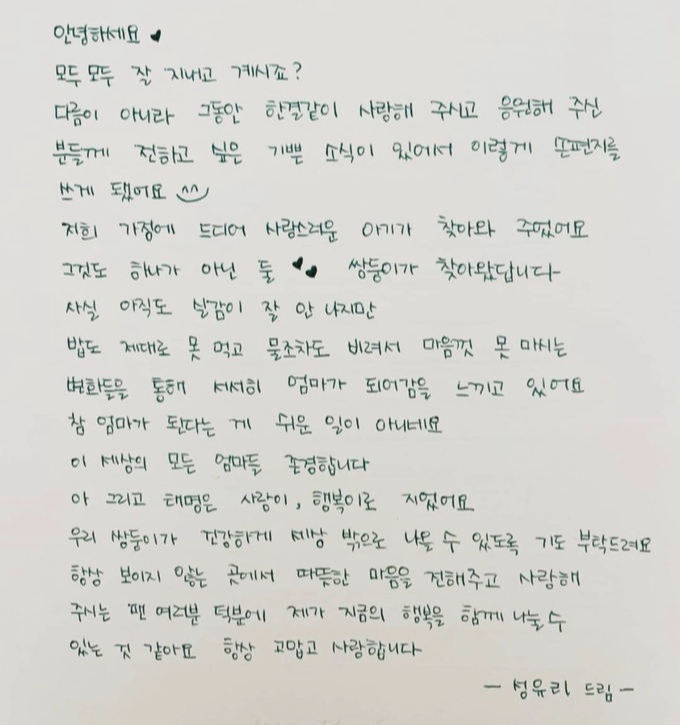 안녕하세요 ♥
모두 모두 잘 지내고 계시죠?
다름이 아니라 그동안 한결같이 사랑해 주시고 응원해 주신
분들께 전하고 싶은 기쁜 소식이 있어서 이렇게 손편지를
쓰게 됐어요 ^^
저희 가정에 드디어 사랑스러운 아기가 찾아와 주었어요
그것도 하나가 아닌 둘 ♥♥ 쌍둥이가 찾아왔답니다~
사실 아직도 실감이 잘 안 나지만
밥도 제대로 못 먹고 물조차도 비려서 마음껏 못 마시는
변화들을 통해 서서히 엄마가 되어감을 느끼고 있어요
참 엄마가 된다는 게 쉬운 일이 아니네요
이 세상의 모든 엄마들 존경합니다
아 그리고 태명은 사랑이, 행복이로 지었어요
우리 쌍둥이가 건강하게 세상 밖으로 나올 수 있도록 기도 부탁드려요
항상 보이지 않는 곳에서 따뜻한 마음을 전해주고 사랑해
주시는 팬 여러분 덕분에 제가 지금의 행복을 함께 나눌 수
있는 것 같아요 항상 고맙고 사랑합니다
- 성유리 드림 -